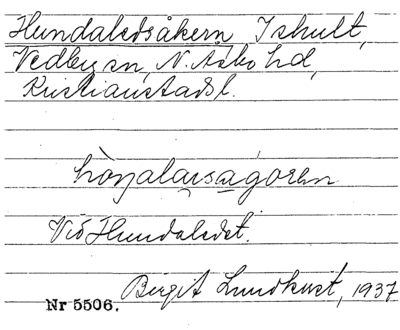 Hundaledsåkern Ishult,
Vedby sn, N. Åsbo hd,
Kristianstads l.
Vid Hundaledet.
Birgit Lundkvist, 1937
Nr 5506.